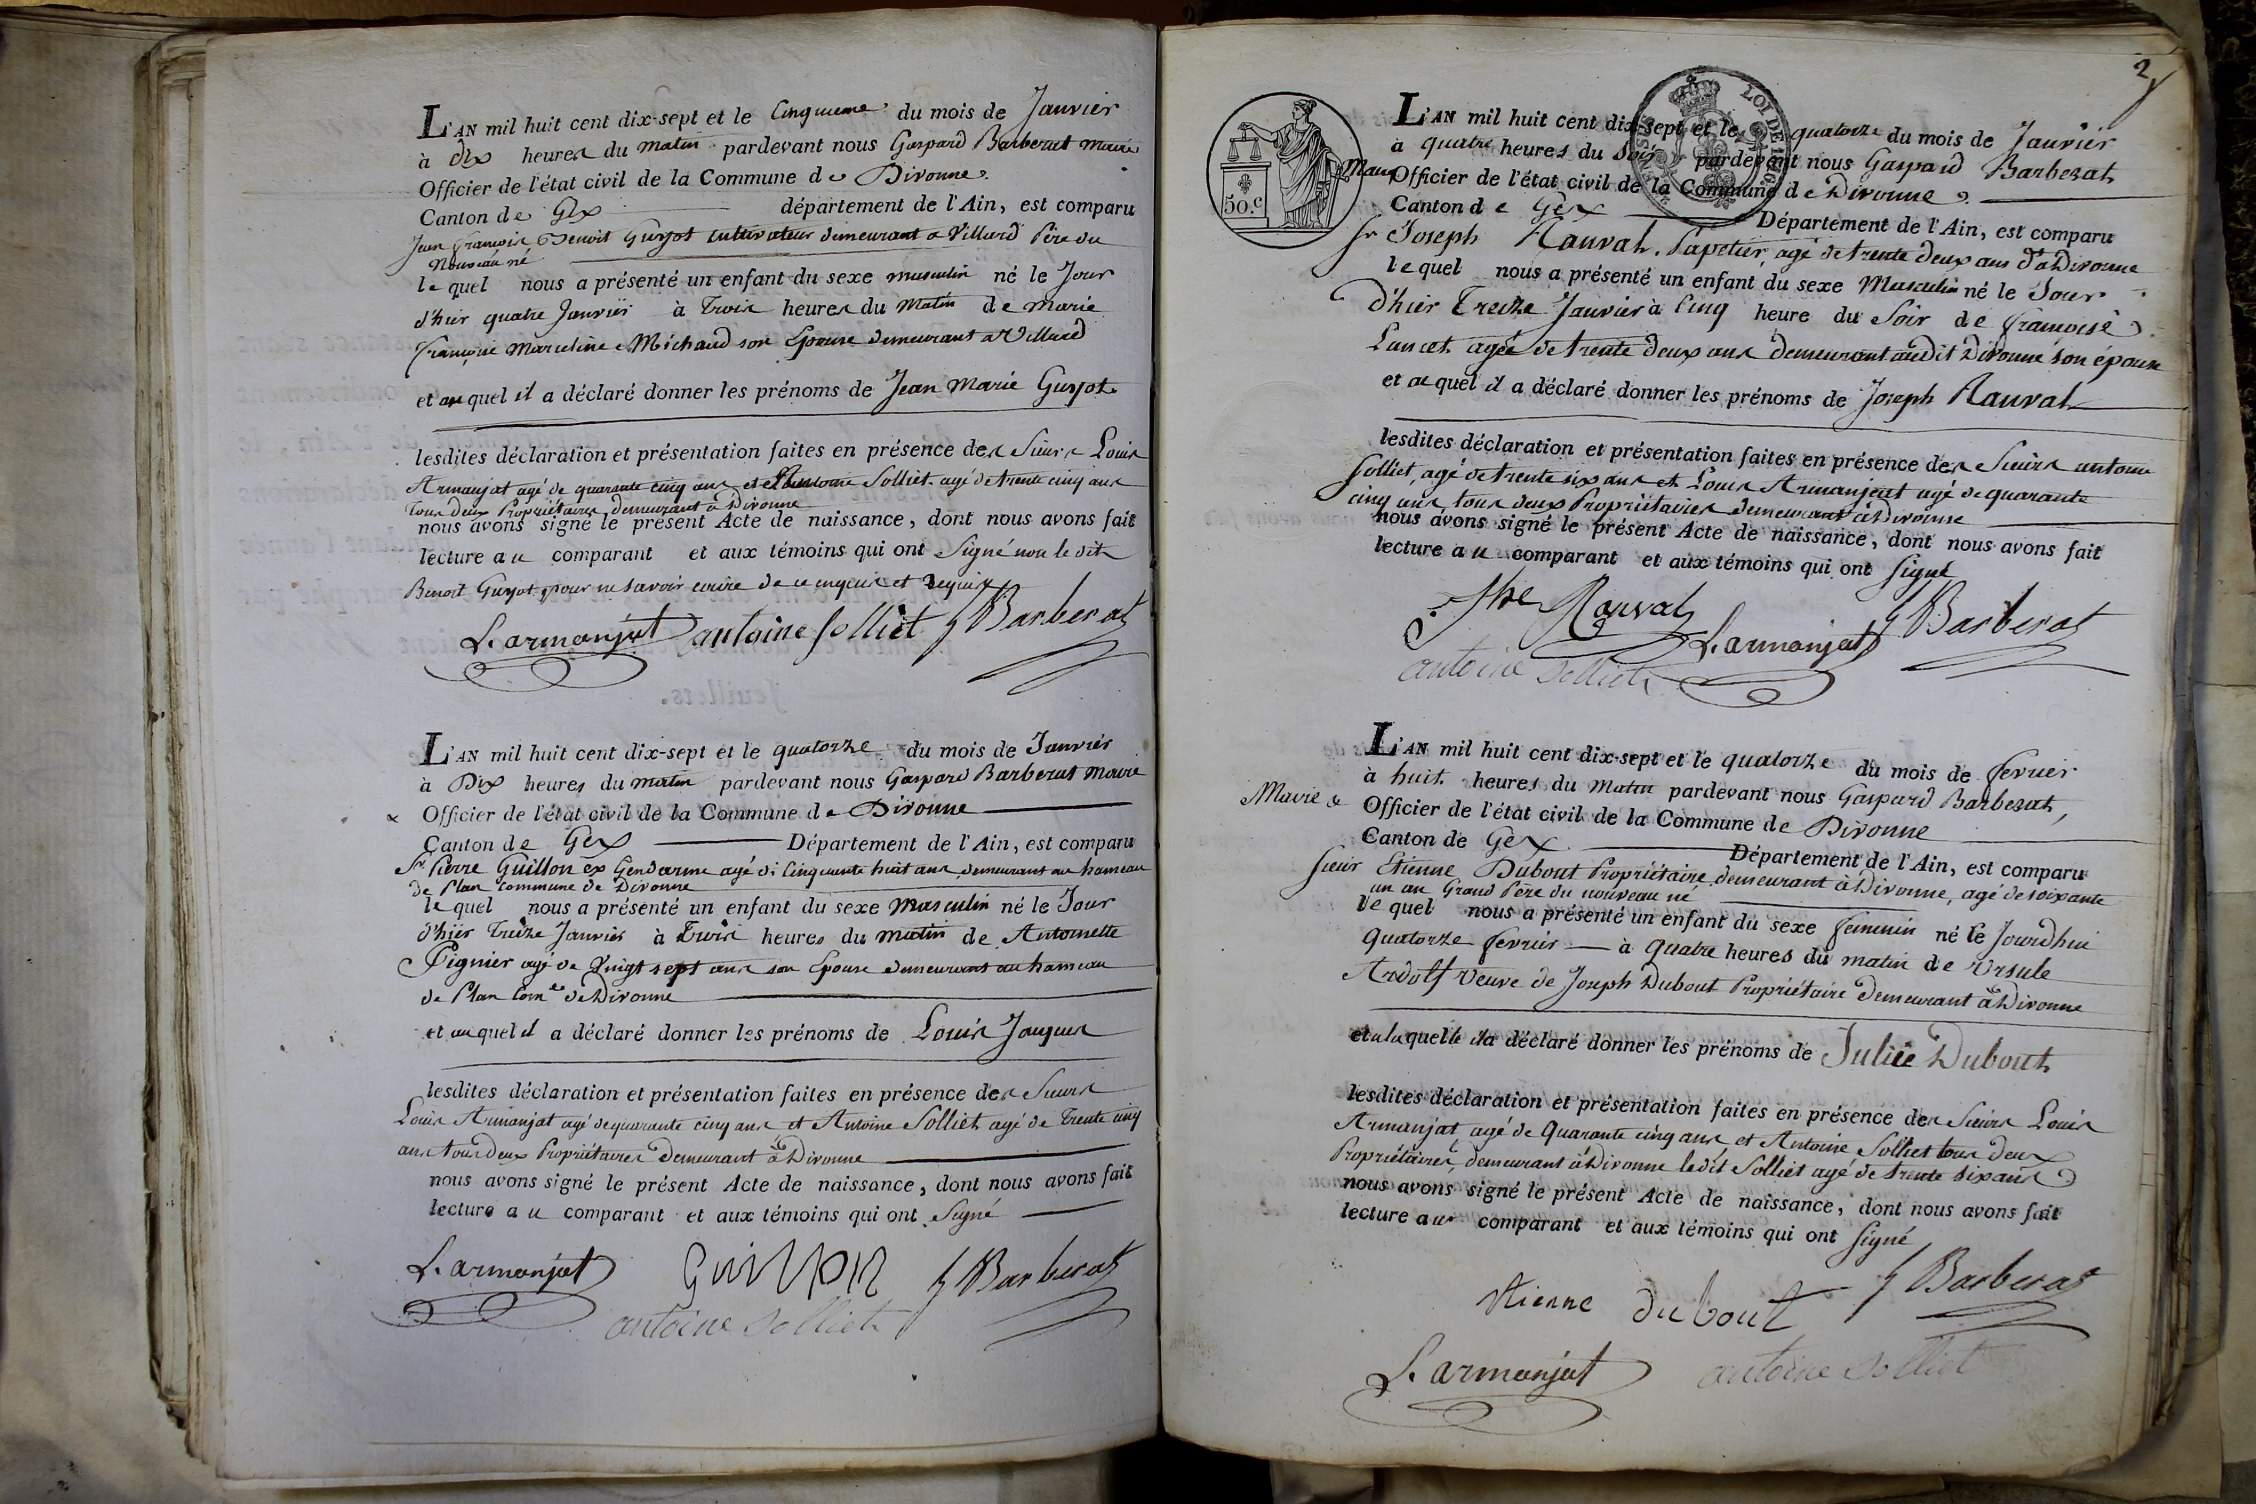 L'AN mil huit cent dix-sept et le Cinquieme du mois de Janvier
à dix heures du matin pardevant nous Gaspard Barberat maire
Officier de l'état civil de la Commune de Divonne
Canton de Gex département de l'Ain, est comparu
Jean françois Benoit Guyot cultivateur demeurant a Villard Père du
Nouveau né
le quel nous a présenté un enfant du sexe masculin né le Jour
d'hier quatre Janvier à Trois heures du Matin de marie
françoise Marceline Michaud son Epouse demeurant a Villard
et au quel il a déclaré donner les prénoms de Jean Marie Guyot
lesdites déclaration et présentation faites en présence des Sieurs Louis
Armanjat agé de quarante cinq ans et Antoine Solliet agé de trente cinq ans
tous deux Propriétaires demeurant à Divonne
nous avons signé le présent Acte de naissance, dont nous avons fait
lecture au comparant et aux témoins qui ont Signé non le dit
Benoit Guyot pour ne savoir ecrire de ce enquis et requis
L. armanjat antoine solliet g Barberat
L'AN mil huit cent dix-sept et le quatorze du mois de Janvier
à Dix heures du matin pardevant nous Gaspard Barberat Maire
x Officier de l'état civil de la Commune de Divonne
Canton de Gex Département de l'Ain, est comparu
Sr Pierre Guillon ex Gendarme agé de Cinquante huit ans demeurant au hameau
de Plan commune de Divonne
le quel nous a présenté un enfant du sexe Masculin né le Jour
d'hier Treize Janvier à Trois heures du matin de Antoinette
Pignier agé de Vingt sept ans son Epouse demeurant au hameau
de Plan Come de Divonne
et au quel il a déclaré donner les prénoms de Louis Jaques
lesdites déclaration et présentation faites en présence des Sieurs
Louis Armanjat agé de quarante cinq ans et Antoine Solliet agé de Trente cinq
ans tous deux Propriétaires demeurant à Divonne
nous avons signé le présent Acte de naissance, dont nous avons fait
lecture au comparant et aux témoins qui ont Signé
L. armanjat Guillon g Barberat
antoine Solliet
2
50.c
LOI DE 1816
L'AN mil huit cent dix-sept et le quatorze du mois de Janvier
à quatre heures du Soir pardevant nous Gaspard Barberat
Maire Officier de l'état civil de la Commune de Divonne
Canton de Gex Département de l'Ain, est comparu
sr Joseph Rauvat Papetier agé de trente deux ans d'à Divonne
le quel nous a présenté un enfant du sexe Masculin né le Jour
d'hier Treize Janvier à Cinq heure du Soir de françoise
Lancet agée de trente deux ans demeurant audit Divonne son épouse
et au quel il a déclaré donner les prénoms de Joseph Rauvat
lesdites déclaration et présentation faites en présence des Sieurs antoine
Solliet, agé de trente six ans et Louis Armanjeat agé de quarante
cinq ans, tous deux Propriétaires demeurant à Divonne
nous avons signé le présent Acte de naissance, dont nous avons fait
lecture au comparant et aux témoins qui ont signé
Jhe Rauvat L. armanjat g Barberat
antoine Solliet
L'AN mil huit cent dix-sept et le quatorze du mois de fevrier
à huit heures du Matin pardevant nous Gaspard Barberat,
Mavie & Officier de l'état civil de la Commune de Divonne
Canton de Gex Département de l'Ain, est comparu
sieur Etienne Dubout Propriétaire demeurant à Divonne, agé de soixante
un an Grand Père du nouveau né
le quel nous a présenté un enfant du sexe feminin né le Jourdhui
Quatorze fevrier à quatre heures du matin de Ursule
Andolf Veuve de Joseph Dubout Propriétaire demeurant à Divonne
et a la quelle il a déclaré donner les prénoms de Julie Dubout
lesdites déclaration et présentation faites en présence des Sieurs Louis
Armanjat, agé de Quarante cinq ans, et Antoine Solliet tous deux
Propriétaires, demeurant à Divonne ledit Solliet agé de trente six ans
nous avons signé le présent Acte de naissance, dont nous avons fait
lecture au comparant et aux témoins qui ont signé
Etienne dubout g Barberat
L. armanjat antoine Solliet